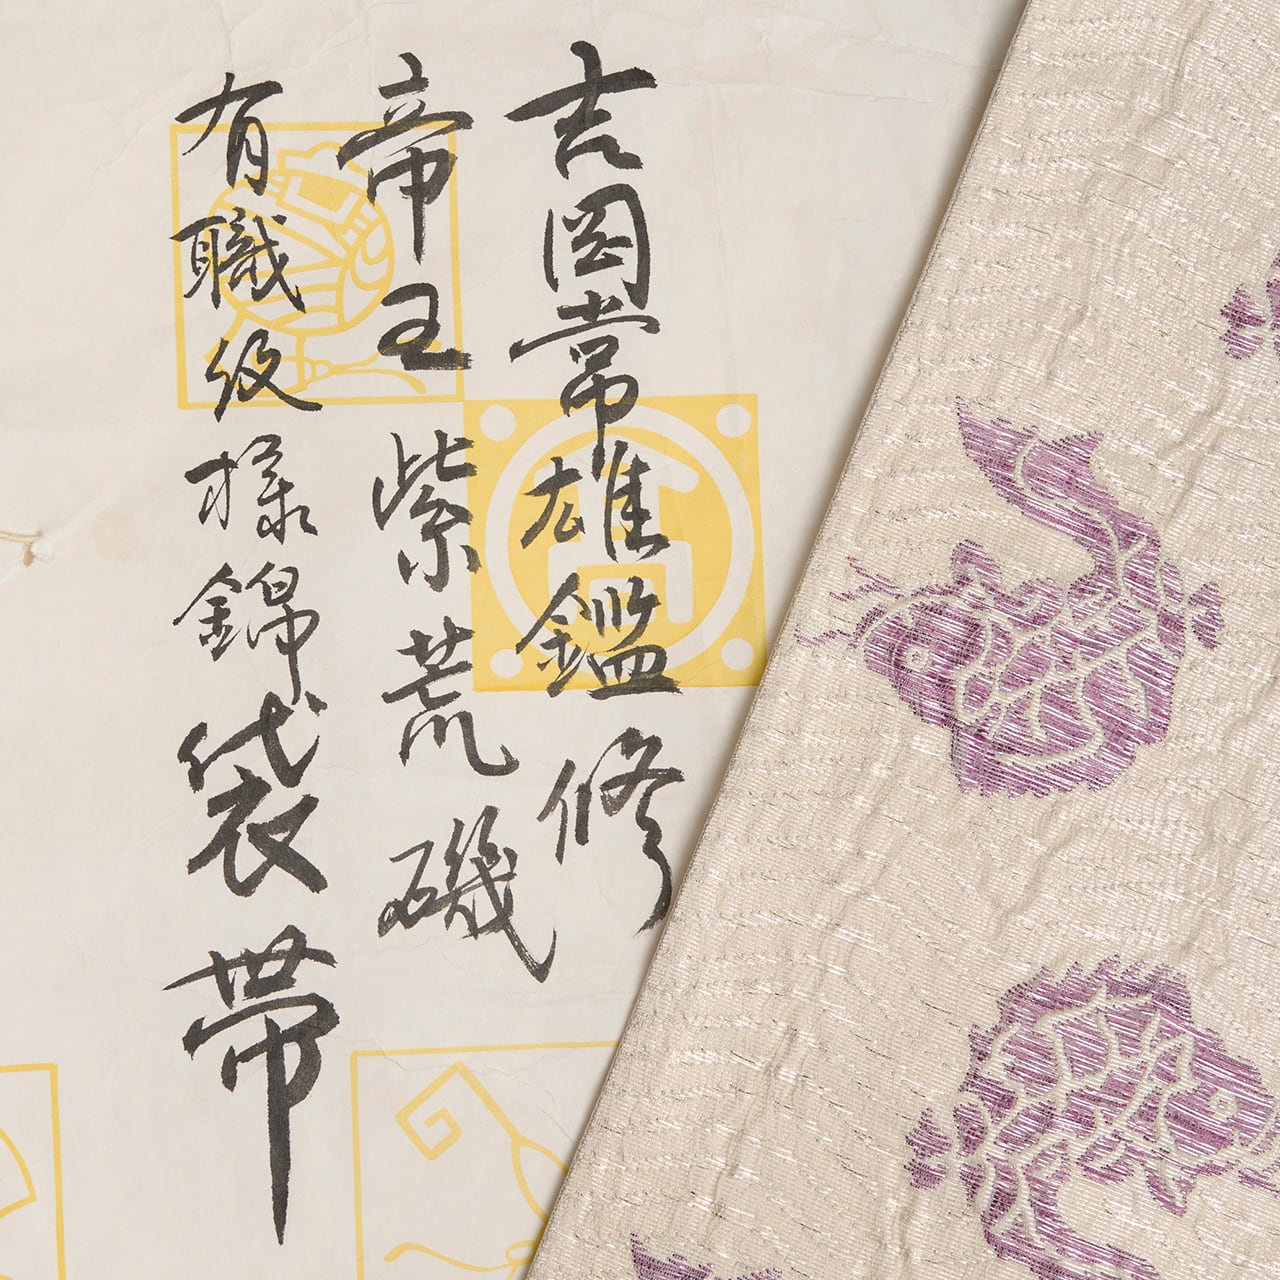 吉岡常雄鑑修
帝王紫荒磯
有職紋様錦袋帯